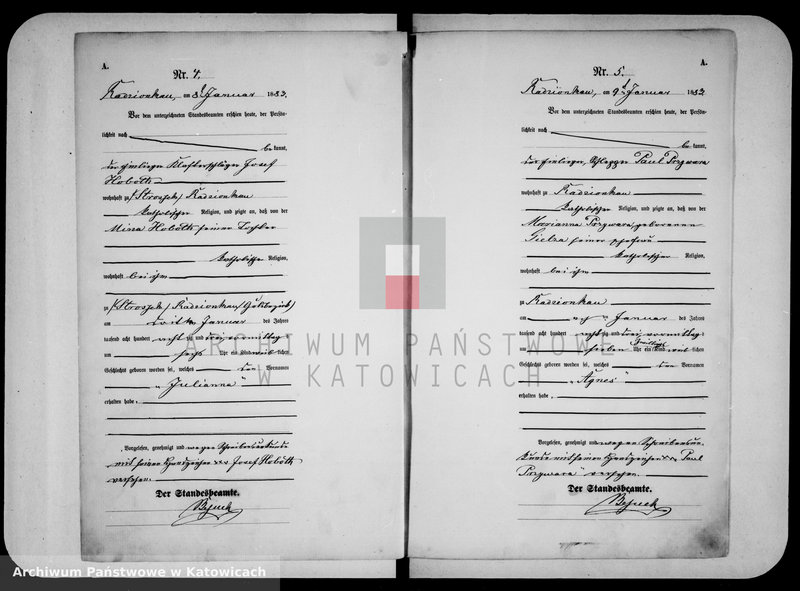 A.
Nr. 4.
Radzionkau, am 8t Januar 1883.
Vor dem unterzeichneten Standesbeamten erschien heute, der Persön-
lichkeit nach
bekannt,
der Einlieger Klafterschläger Josef
Hoboth
wohnhaft zu Radzionkau
katholischer Religion, und zeigte an, daß von der
Mina Hoboth seiner Tochter
katholische Religion,
wohnhaft bei ihm
zu Radzionkau
am Januar des Jahres
tausend acht hundert achtzig und drei vormittag
um sechs Uhr ein Kind weiblichen
Geschlechts geboren worden sei, welches den Vornamen
„Julianna“
erhalten habe.
Vorgelesen, genehmigt und wegen Schreibensunkunde
mit seinen Handzeichen xxx Josef Hoboth
versehen.
Der Standesbeamte.
A.
Nr. 5.
Radzionkau, am 9t Januar 1883
Vor dem unterzeichneten Standesbeamten erschien heute, der Persön-
lichkeit nach
bekannt,
der Einlieger, Schlepper Paul Przywara
wohnhaft zu Radzionkau
katholischer Religion, und zeigte an, daß von der
Marianna Przywara geborenen
Gielza seiner Ehefrau
katholischer Religion,
wohnhaft bei ihm
zu Radzionkau
am Januar des Jahres
tausend acht hundert achtzig und drei vormittag
um sieben Uhr ein Kind weiblichen
Geschlechts geboren worden sei, welches den Vornamen
„Agnes“
erhalten habe.
Vorgelesen, genehmigt und wegen Schreibensun-
kunde mit seinen Handzeichen xxx Paul
Przywara versehen.
Der Standesbeamte.
ARCHIWUM PAŃSTWOWE
W KATOWICACH
Archiwum Państwowe w Katowicach